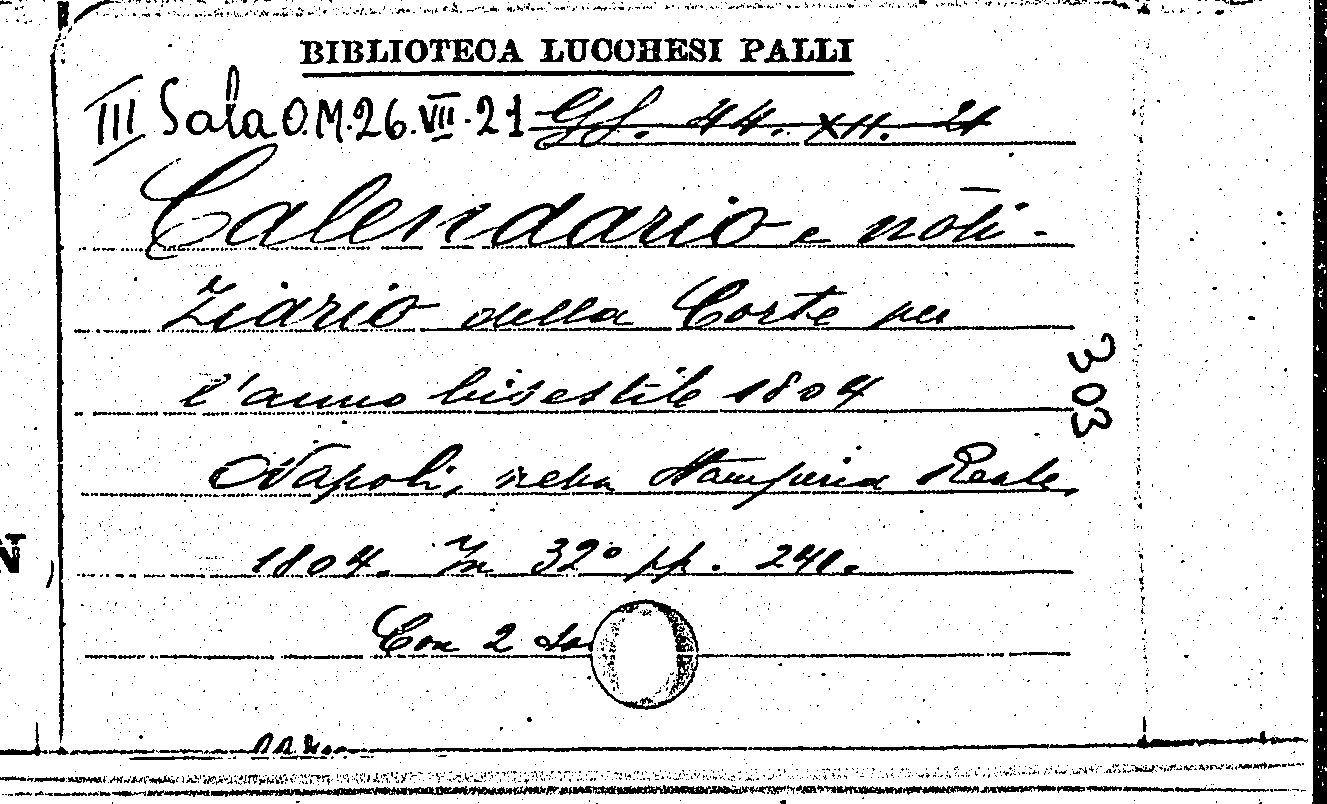 BIBLIOTECA LUCCHESI PALLI
III Sala O.M.26.VII.21 Gf. 44. XII. 21
Calendario e noti-
ziario della Corte per
l'anno bisestile 1804
Napoli, nella Stamperia Reale,
1804. In 32° pp. 240.
Con 2
303
N